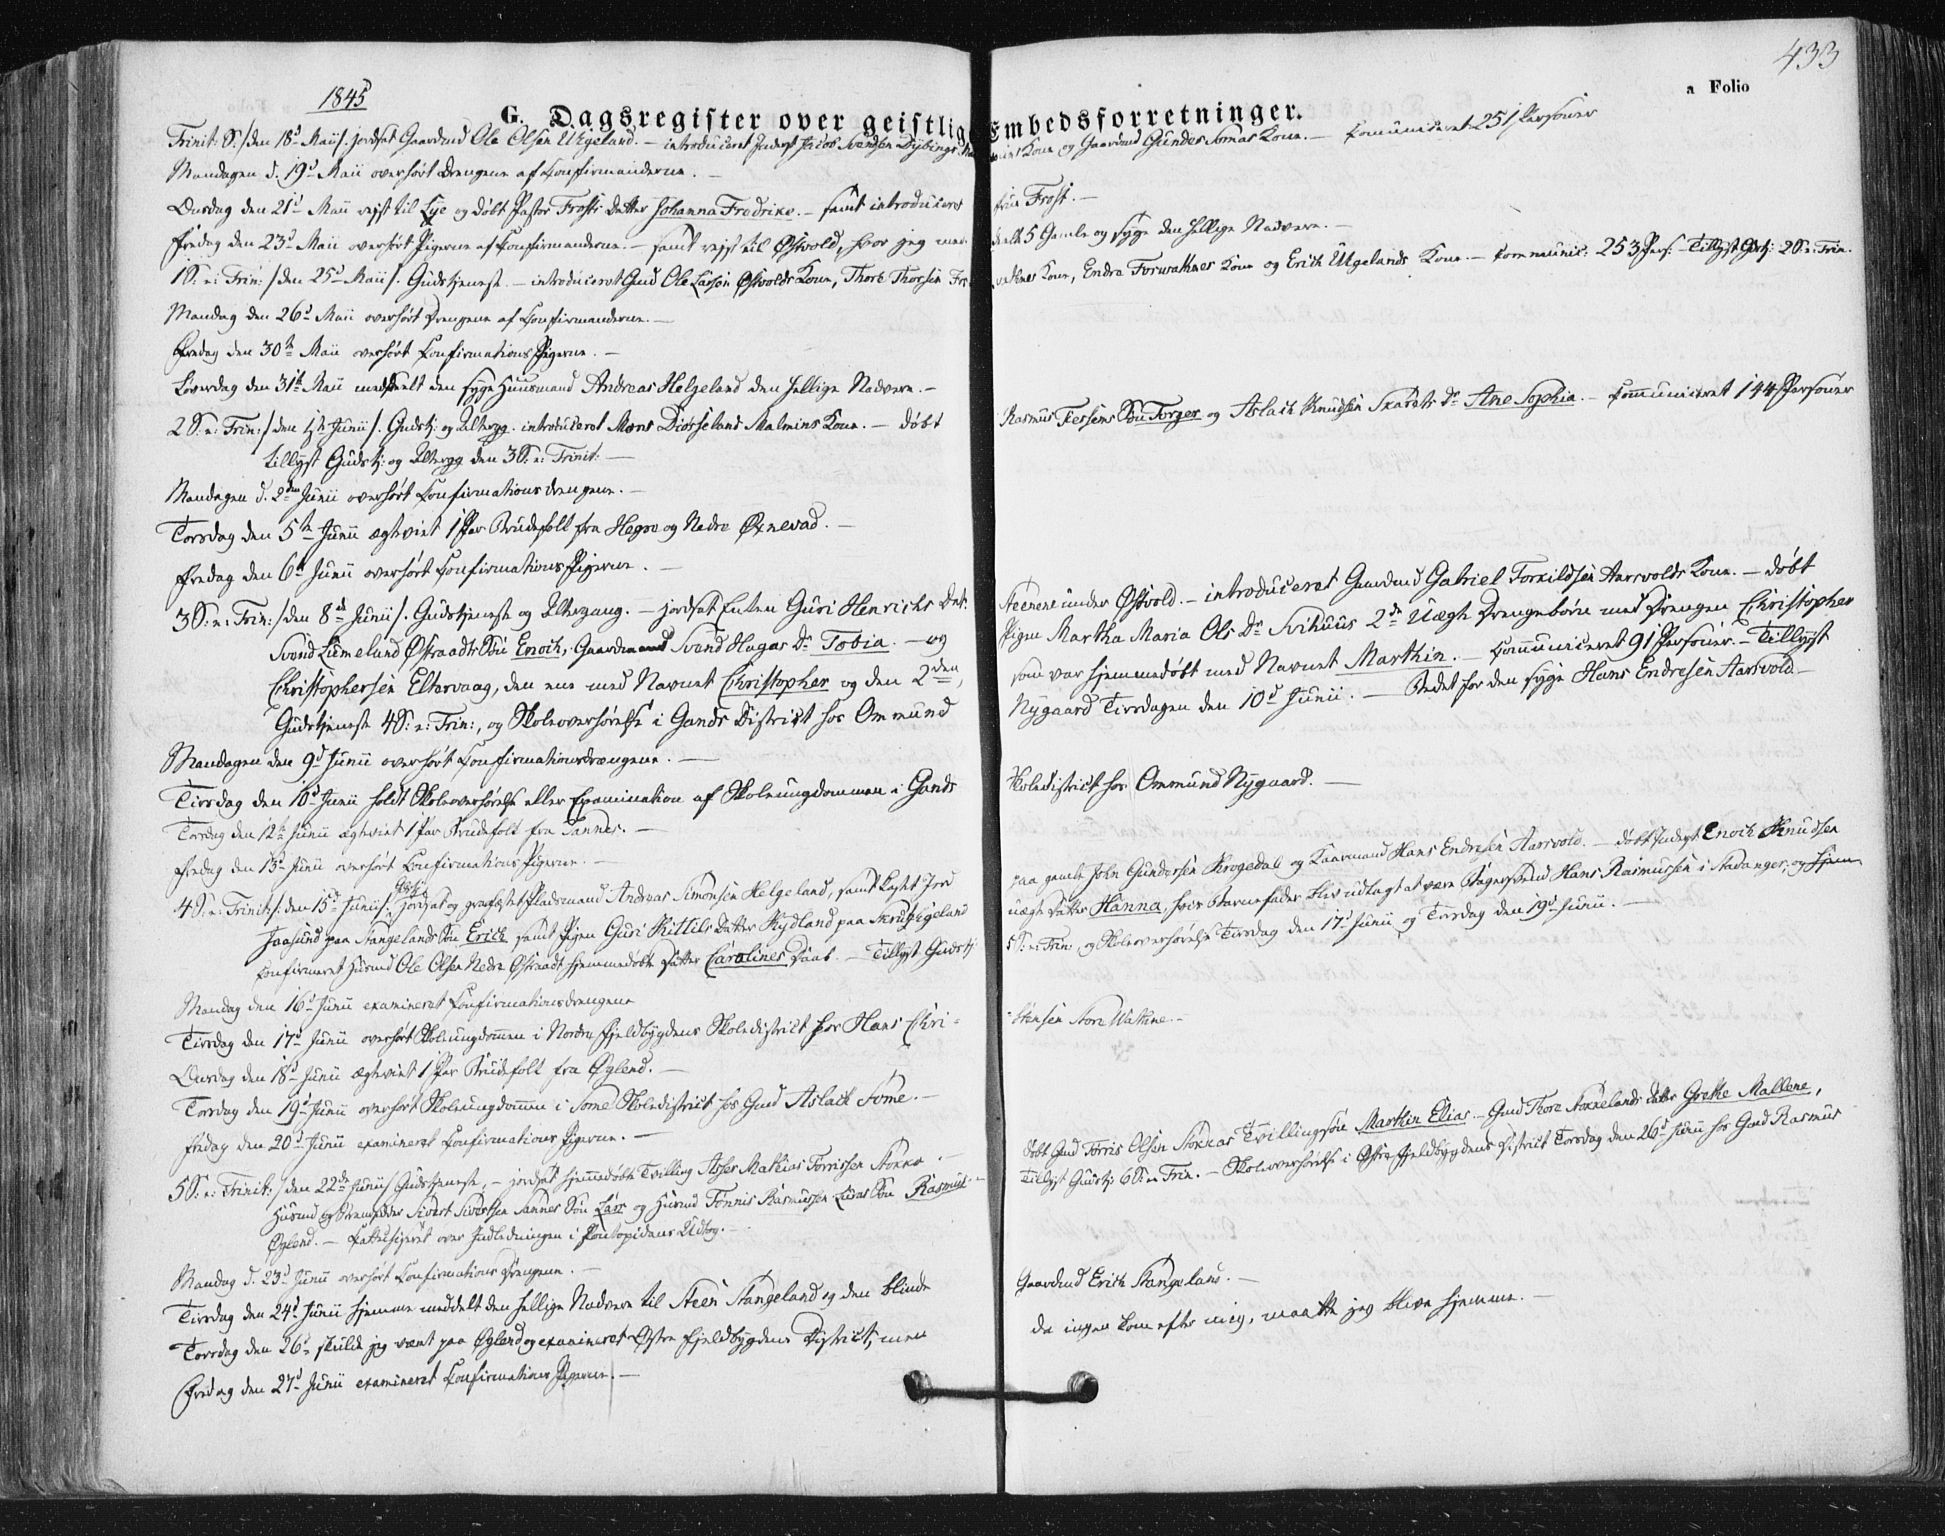 433
a Folio
1845
G. Dagsregister over geistlige Embedsforretninger.
Trinit: S: /den 18d Maii/. jordfæt Gaardmd Ole Olsen Utzigeland. — introduceret Inderst Jacob Svendsen Dybings Kone og Gaardmd Gundes Somas Kone. — Communiceret 251 Personer
Mandagen d. 19d Maii overhørt Drengene af Confirmanderne. —
Onsdag den 21d Maii rejst til Lye og døbt Pastor Frosts Datter Johanna Fredrike. — samt introduceret fru Frost. —
Fredag den 23d Maii overhørt Pigerne af Confirmanderne. — samt rejst til Østvold, hvor jeg meddeelte 5 Gamle og syge den hellige Nadvere. —
1 S: e: Trin: /den 25d Maii/. Gudstjeneste. — introduceret Gmd Ole Larsen Østvolds Kone, Thore Thorsen Kone, Endre Kone og Erich Utzgelands Kone. — Communic: 253 Pers: — Tillyst Gtj: 2 S: e: Trin.
Mandag den 26d Maii overhørt Drengene af Confirmanderne. —
Fredag den 30te Maii overhørt Confirmations Pigerne. —
Løverdag den 31te Maii meddeelt den syge Huusmand Andreas Helgeland den hellige Nadvere. —
2 S: e: Trin: /den 1te Junii/. Gudstj: og Alterg. introduceret Mons Malmins Kone. — døbt Rasmus Søn Torger og Aslach Knudsen Skarets Dr Ane Sophia. — Communiceret 144 Personer
tillyst Gudstj: og Alterg den 3 S: e: Trinit: —
Mandagen d. 2den Junii overhørt Confirmationsdrengene. —
Torsdag den 5te Junii ægteviet 1 Par Brudefolk fra Hegre og Nedre Øxnevad. —
Fredag den 6te Junii overhørt Confirmations Pigerne. —
3 S: e: Trin: /den 8de Junii/. Gudstjeneste og Altergang. — jordfæt Enken Guri Henrichs Dat: Steenene under Østvold. — introduceret Gaardmd Gabriel Torkildsen Aarsvolds Kone. — døbt
Svend Lumeland Østraadts Søn Enoch, Gaardmand Svend Hagas Dr Tobia. — og Pigen Martha Maria Ols Dr Svihuus 2de Uægte Drengebørn med Drengen Christopher
Christophersen Eltervaag, den ene med Navnet Christopher og den 2den, som var hjemmedøbt med Navnet Marthin. — Communiceret 91 Personer. — Tillyst
Gudstjeneste 4 S: e: Trin:, og Skoleoverhørelse i Gands District hos Ommund Nygaard Tirsdagen den 10d Junii. — Bedet for den syge Hans Endresen Aarsvold. —
Mandagen den 9d Junii overhørt Confirmationsdrengene. —
Tirsdag den 10d Junii holdt Skoleoverhørelse eller Examination af Skoleungdommen i Gands Skoledistrict hos Ommund Nygaard. —
Torsdag den 12te Junii ægteviet 1 Par Brudefolk fra Sannes. —
Fredag den 13d Junii overhørt Confirmations Pigerne. —
4 S: e: Trinit: /den 15de Junii/. jordfæt og gravfæstet Pladsmand Andreas Simonsen Helgeland, samt kastet Jord paa gamle John Gundersen Krogedal og Kaarmand Hans Endresen Aarsvold. — døbt Inderst Enoch Knudsen
Jaasund paa Stangelands Søn Erich samt Pigen Guri Kittils Datter Kydland paa uægte Datter Hanna, hvis Barnefader blev udlagt at være Hans Rasmussen i Stavanger, og
confirmeret Husmd Ole Olsen Nedre Østraadt hjemmedøbte Datter Carolines Daab. — Tillyst Gudstj 5 S: e: Trin:, og Skoleoverhørelse Tirsdag den 17d Junii og Torsdag den 19d Junii. —
Mandag den 16d Junii examineret Confirmationsdrengene
Tirsdag den 17d Junii overhørt Skoleungdommen i Nordre Fjeldbygdens Skoledistrict hos Hans Christensen Store Wathne. —
Onsdag den 18d Junii ægteviet 1 Par Brudefolk fra Øglend. —
Torsdag den 19d Junii overhørt Skoleungdommen i Some Skoledistrict hos Gmd Aslach Some. —
Fredag den 20d Junii examineret Confirmations Pigerne. —
5 S: e: Trinit: /den 22de Junii/ Gudstjeneste, — jordfæt hjemmedøbte Tvilling Asser Mathias Torrissen Stokke. — døbt Gmd Torris Olsen Stokkas Tvillingsøn Marthin Elias. — Gmd Thore Stokkelands datter Grethe Mallene,
Husmd og Sivert Sivertsen Sannes Søn Lars og Husmd Tønnis Rasmussen Søn Rasmus. — Tillyst Gudstj: 6 S: e: Trin. — Skoleoverhørelse i Østre Fjeldbygdens District Torsdag den 26d Junii hos Gmd Rasmus
Øglend. — Catechiseret over Indledningen i Pontopidans Udtog. —
Mandag d. 23d Junii overhørt Confirmations Drengene. —
Tirsdag den 24d Junii hjemme meddelt den hellige Nadvere til Steen Stangeland og den blinde Gaardmd Erich Stangeland. —
Torsdag den 26d skulde jeg været paa Øglend og examineret Østre Fjeldbygdens District, men da ingen kom efter mig, maatte jeg blive hjemme. —
Fredag den 27d Junii examineret Confirmations Pigerne. —